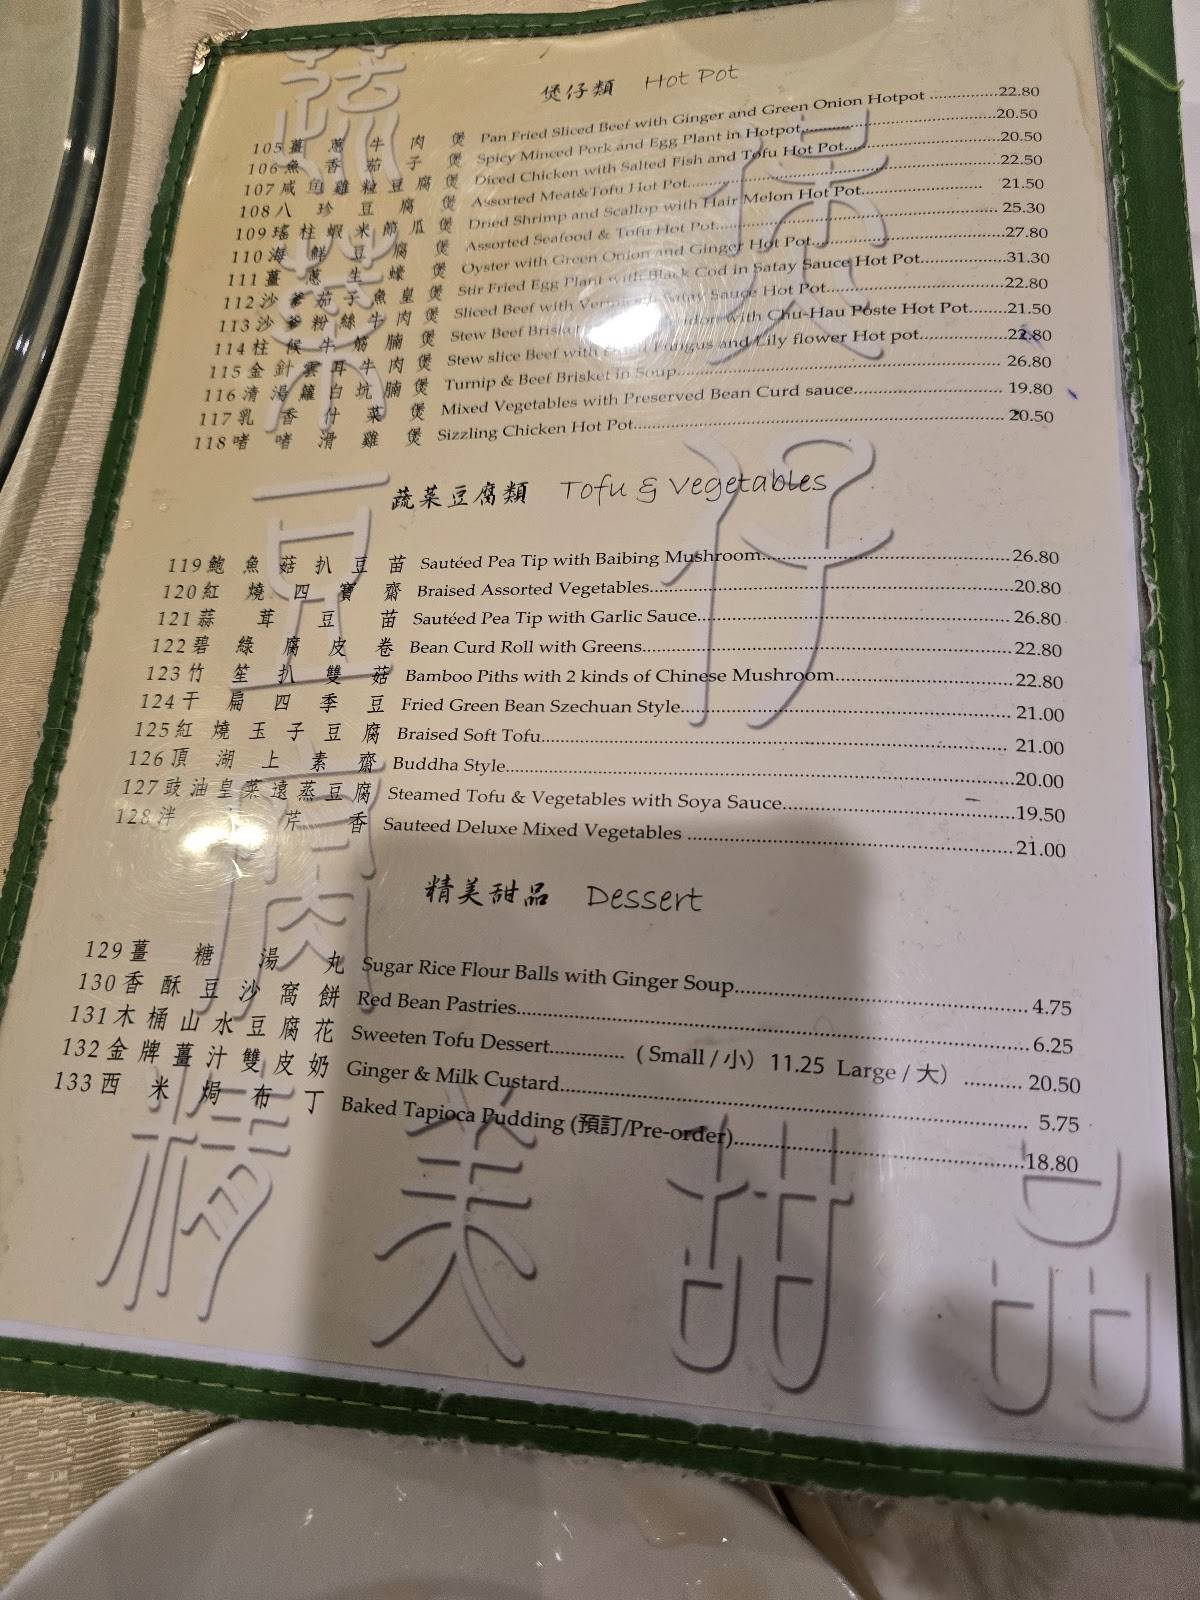 煲仔類 Hot Pot
105 薑蔥牛肉煲 Pan Fried Sliced Beef with Ginger and Green Onion Hotpot ...............22.80
106 魚香茄子煲 Spicy Minced Pork and Egg Plant in Hotpot...............20.50
107 咸魚雞粒豆腐煲 Diced Chicken with Salted Fish and Tofu Hot Pot...............20.50
108 八珍豆腐煲 Assorted Meat&Tofu Hot Pot...............22.50
109 瑤柱蝦米節瓜煲 Dried Shrimp and Scallop with Hair Melon Hot Pot............... 21.50
110 海鮮豆腐煲 Assorted Seafood & Tofu Hot Pot............... 25.30
111 薑蔥生蠔煲 Oyster with Green Onion and Ginger Hot Pot...............27.80
112 沙爹茄子魚皇煲 Stir Fried Egg Plant with Black Cod in Satay Sauce Hot Pot...............31.30
113 沙爹粉絲牛肉煲 Sliced Beef with Satay Sauce Hot Pot...............22.80
114 柱候牛筋腩煲 Stew Beef with Chu-Hau Poste Hot Pot........21.50
115 金針雲耳牛肉煲 Stew slice Beef with Fungus and Lily flower Hot pot...............22.80
116 清湯蘿白坑腩煲 Turnip & Beef Brisket in Soup............... 26.80
117 乳香什菜煲 Mixed Vegetables with Preserved Bean Curd sauce............... 19.80
118 啫啫滑雞煲 Sizzling Chicken Hot Pot............... 20.50
蔬菜豆腐類 Tofu & Vegetables
119 鮑魚菇扒豆苗 Sautéed Pea Tip with Baibing Mushroom...............26.80
120 紅燒四寶齋 Braised Assorted Vegetables...............20.80
121 蒜茸豆苗 Sautéed Pea Tip with Garlic Sauce............... 26.80
122 碧綠腐皮卷 Bean Curd Roll with Greens...............22.80
123 竹笙扒雙菇 Bamboo Piths with 2 kinds of Chinese Mushroom...............22.80
124 干扁四季豆 Fried Green Bean Szechuan Style............... 21.00
125 紅燒玉子豆腐 Braised Soft Tofu............... 21.00
126 頂湖上素齋 Buddha Style...............20.00
127 豉油皇菜遠蒸豆腐 Steamed Tofu & Vegetables with Soya Sauce...............19.50
128 泮芹香 Sauteed Deluxe Mixed Vegetables ...............21.00
精美甜品 Dessert
129 薑糖湯丸 Sugar Rice Flour Balls with Ginger Soup............... 4.75
130 香酥豆沙窩餅 Red Bean Pastries...............6.25
131 木桶山水豆腐花 Sweeten Tofu Dessert.............. ( Small / 小）11.25 Large / 大） .......... 20.50
132 金牌薑汁雙皮奶 Ginger & Milk Custard............... 5.75
133 西米焗布丁 Baked Tapioca Pudding (預訂/Pre-order)...............18.80
蔬菜豆腐
煲仔
精美甜品